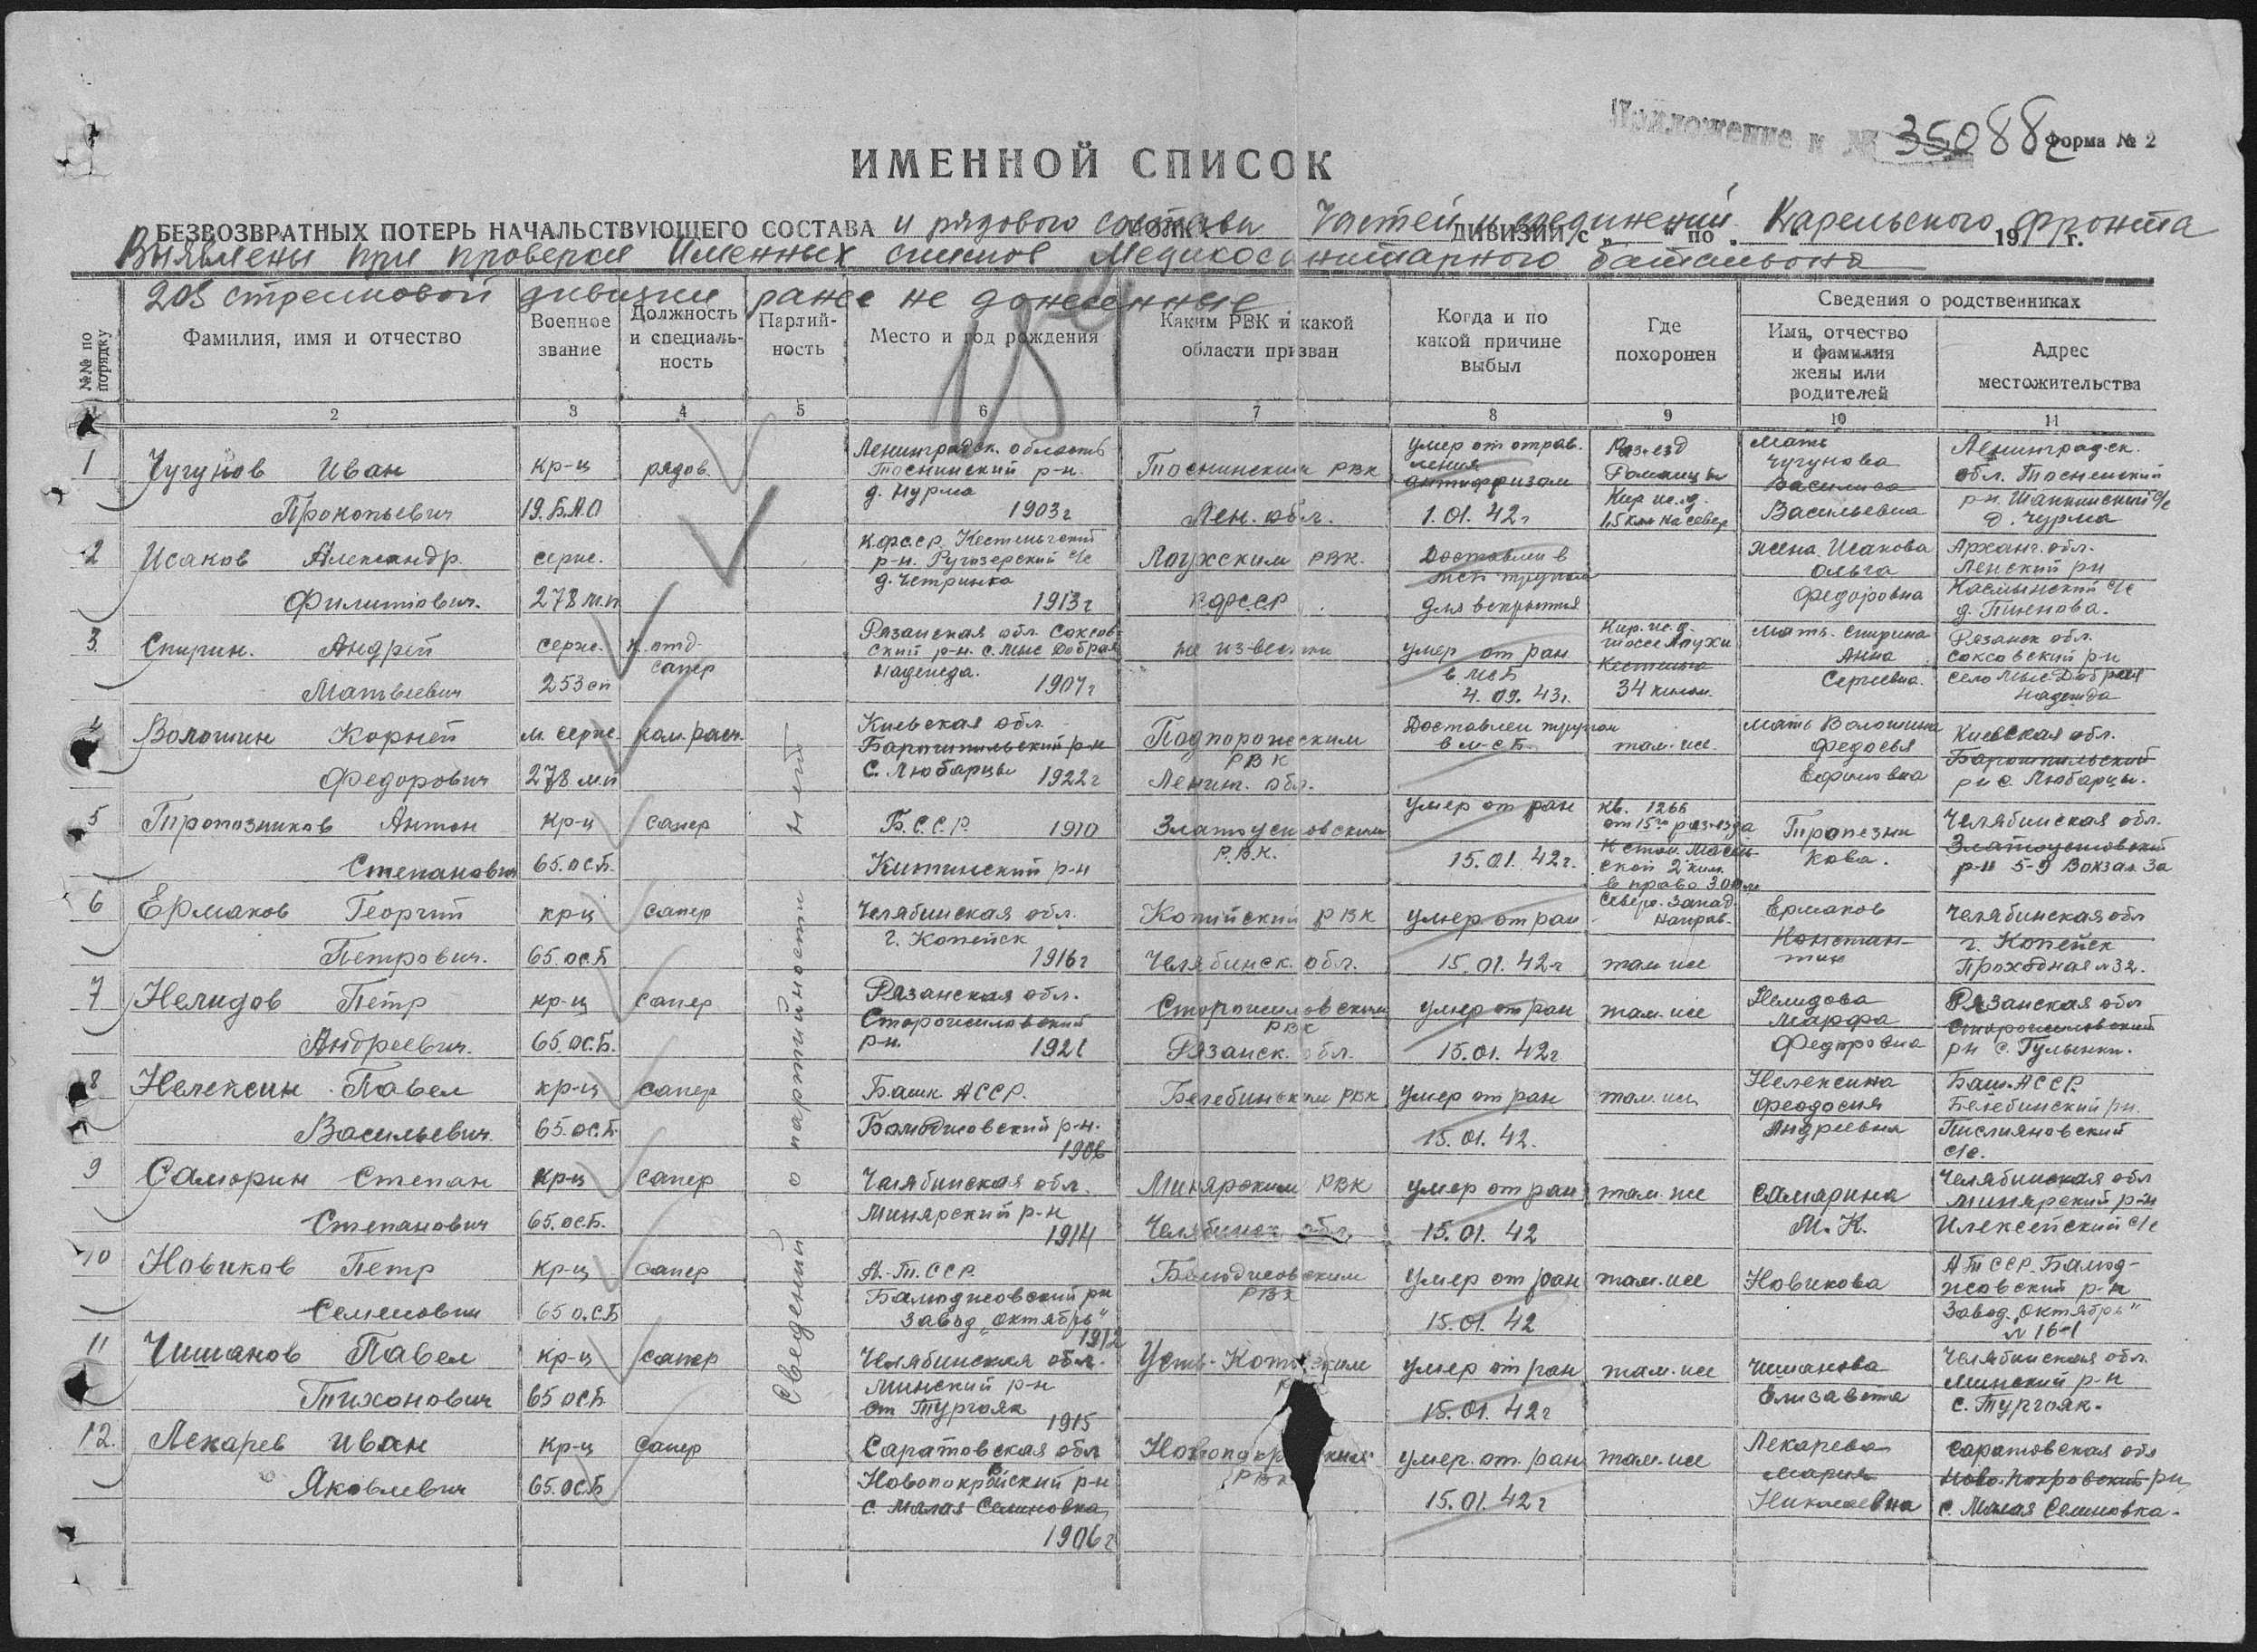 Приложение к № 35088с Форма № 2
ИМЕННОЙ СПИСОК
БЕЗВОЗВРАТНЫХ ПОТЕРЬ НАЧАЛЬСТВУЮЩЕГО СОСТАВА и рядового состава Частей и соединений ДИВИЗИИ с „ по Карельского фронта 19 г.
Выявлены при проверке Именных списков Медикосанитарного баталиона
205 стрелковой дивизии ранее не донесенные
№№ по порядку
Фамилия, имя и отчество
Военное звание
Должность и специальность
Партийность
Место и год рождения
Каким РВК и какой области призван
Когда и по какой причине выбыл
Где похоронен
Сведения о родственниках
Имя, отчество и фамилия жены или родителей
Адрес местожительства
2 3 4 5 6 7 8 9 10 11
Сведений о партийности нет
1 Чугунов Иван Прокопьевич
кр-ц 19. Б.А.О
рядов.
Ленинградск. область
Тоснинский р-н.
д. Нурма
1903 г
Тоснинским РВК
Лен. обл.
умер от отравления
антифризом
1.01.42 г
Раз'езд
Кир ж.д.
1,5 км на север
мать
Чугунова
Василиса
Васильевна
Ленинградск.
обл. Тосненский
р-н. Шапкинский с/с
2 Исаков Александр Филиппович.
серж. 278 м.п
К.Ф.С.С.Р. Кестеньгский
р-н. Ругозерский с/с
1913 г
Лоухским РВК.
К.Ф.С.С.Р.
Доставлен в
мсб трупом
для вскрытия
жена Исакова
Ольга
Федоровна
Арханг. обл.
Ленский р-н
3. Спирин. Андрей Матвеевич
серж. 253 сп
к. отд. сапер
Рязанская обл.
ский р-н. с. Мыс Добрая
Надежда.
1907 г
не известно
умер от ран
в МСБ
4.09.43 г.
Кир. ж.д.
шоссе Лоухи
Кестеньга
34 килом.
мать. Спирина
Анна
Сергеевна.
Рязанск обл.
село Мыс Добрая
Надежда
4 Волошин Корней Федорович
м. серж. 278 м.п
ком. расч.
Киевская обл.
Барышпильский р-н
С. Любарцы 1922 г
Подпорожским
РВК
Ленин. обл.
Доставлен трупом
в м.с.б.
там же.
мать Волошина
Федосья
Ефимовна
Киевская обл.
Барышпильский
р-н с. Любарцы.
5 Трапозников Антон Степанович
кр-ц 65. ОСБ.
сапер
Б.С.С.Р. 1910
Златоустовским
Р.В.К.
умер от ран
15.01.42 г.
кв. 1266
от 15го раз'езда
2 килм.
в право 300 м
Северо. Запад.
направ.
Трапезни
кова.
Челябинская обл.
Златоустовский
р-н 5-9 Вокзал. 3а
6 Ермаков Георгий Петрович.
кр-ц 65. ОСБ
сапер
Челябинская обл.
г. Копейск
1916 г
Копийский РВК
Челябинск. обл.
умер от ран
15.01.42 г
там же
Ермаков
Константин
Челябинская обл
г. Копейск
Проходная №32.
7 Нелидов Петр Андреевич.
кр-ц 65. ОСБ.
сапер
Рязанская обл.
Сторожиловский
р-н. 1921
Сторожиловским
РВК
Рязанск. обл.
умер от ран
15.01.42 г
там. же
Нелидова
Марфа
Федоровна
Рязанская обл
Сторожиловский
р-н с. Гулынки.
8 Нелексин Павел Васильевич.
кр-ц 65. ОСБ.
сапер
Башк АССР.
1906
Белебинским РВК
умер от ран
15.01.42.
там. же
Нелексина
Феодосия
Андреевна
Баш. АССР.
Белебинский р-н.
Пислияновский
с/с.
9 Саморин Степан Степанович
кр-ц 65. ОСБ.
сапер
Челябинская обл.
Минярский р-н
1914
Минярским РВК
Челябинск обл.
умер от ран
15.01.42
там. же
Самарина
М. К.
Челябинская обл
Минярский р-н
Илексейский с/с
10 Новиков Петр Семенович
кр-ц 65 О.С.Б
сапер
А.-Т.ССР.
завод „Октябрь"
1912
РВК
умер от ран
15.01.42
там. же
Новикова
А Т ССР.
завод. „Октябрь"
№ 16-1
11 Чишанов Павел Тихонович
кр-ц 65 ОСБ
сапер
Челябинская обл.
Минский р-н
ст Тургояк
1915
умер от ран
15.01.42 г
там. же
Чишанова
Елизавета
Челябинская обл.
Минский р-н
с. Тургояк.
12. Лекарев Иван Яковлевич
кр-ц 65. ОСБ
сапер
Саратовская обл
Новопокровский р-н
с. Малая Семеновка
1906 г
РВК
умер. от. ран
15.01.42 г
там. же
Лекарева
Мария
Николаевна
Саратовская обл
Ново. Покровский р-н
с. Малая Семеновка.